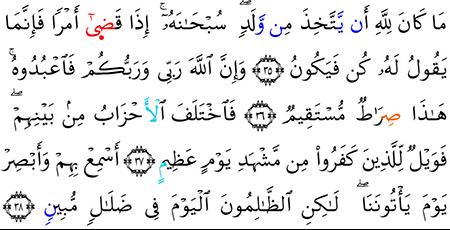 مَا كَانَ لِلَّهِ أَن يَتَّخِذَ مِن وَلَدٍۢ ۖ سُبْحَـٰنَهُۥٓ ۚ إِذَا قَضَىٰٓ أَمْرًۭا فَإِنَّمَا
يَقُولُ لَهُۥ كُن فَيَكُونُ ﴿٣٥﴾ وَإِنَّ ٱللَّهَ رَبِّى وَرَبُّكُمْ فَٱعْبُدُوهُ ۚ
هَـٰذَا صِرَٰطٌۭ مُّسْتَقِيمٌۭ ﴿٣٦﴾ فَٱخْتَلَفَ ٱلْأَحْزَابُ مِنۢ بَيْنِهِمْ ۖ
فَوَيْلٌۭ لِّلَّذِينَ كَفَرُوا۟ مِن مَّشْهَدِ يَوْمٍ عَظِيمٍ ﴿٣٧﴾ أَسْمِعْ بِهِمْ وَأَبْصِرْ
يَوْمَ يَأْتُونَنَا ۖ لَـٰكِنِ ٱلظَّـٰلِمُونَ ٱلْيَوْمَ فِى ضَلَـٰلٍۢ مُّبِينٍۢ ﴿٣٨﴾